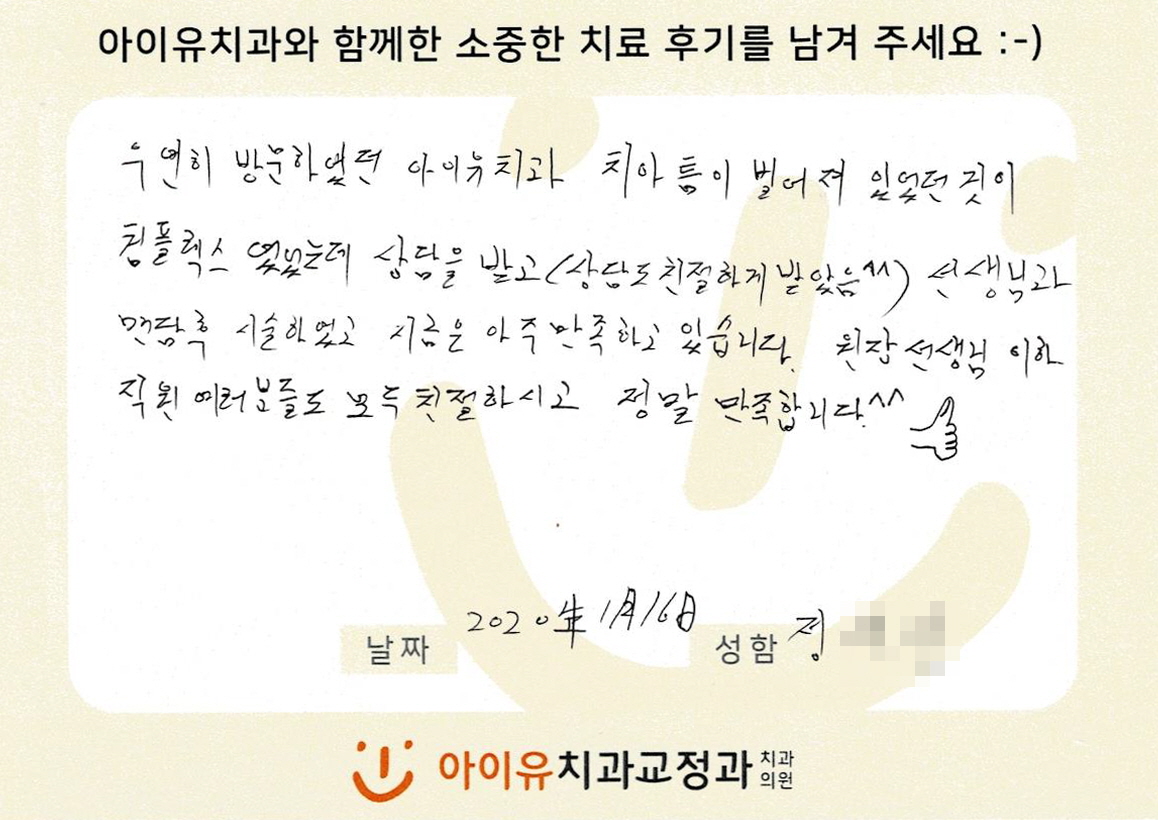 아이유치과와 함께한 소중한 치료 후기를 남겨 주세요 :-)
우연히 방문하였던 아이유치과 치아 틈이 벌어져 있었던 것이
컴플렉스 였었는데 상담을 받고(상담도 친절하게 받았음^^) 선생님과
면담후 시술하였고 지금은 아주 만족하고 있습니다. 원장선생님 이하
직원 여러분들도 모두 친절하시고 정말 만족합니다.^^
날짜 2020年 1月 16日 성함 정
아이유치과교정과 치과
의원